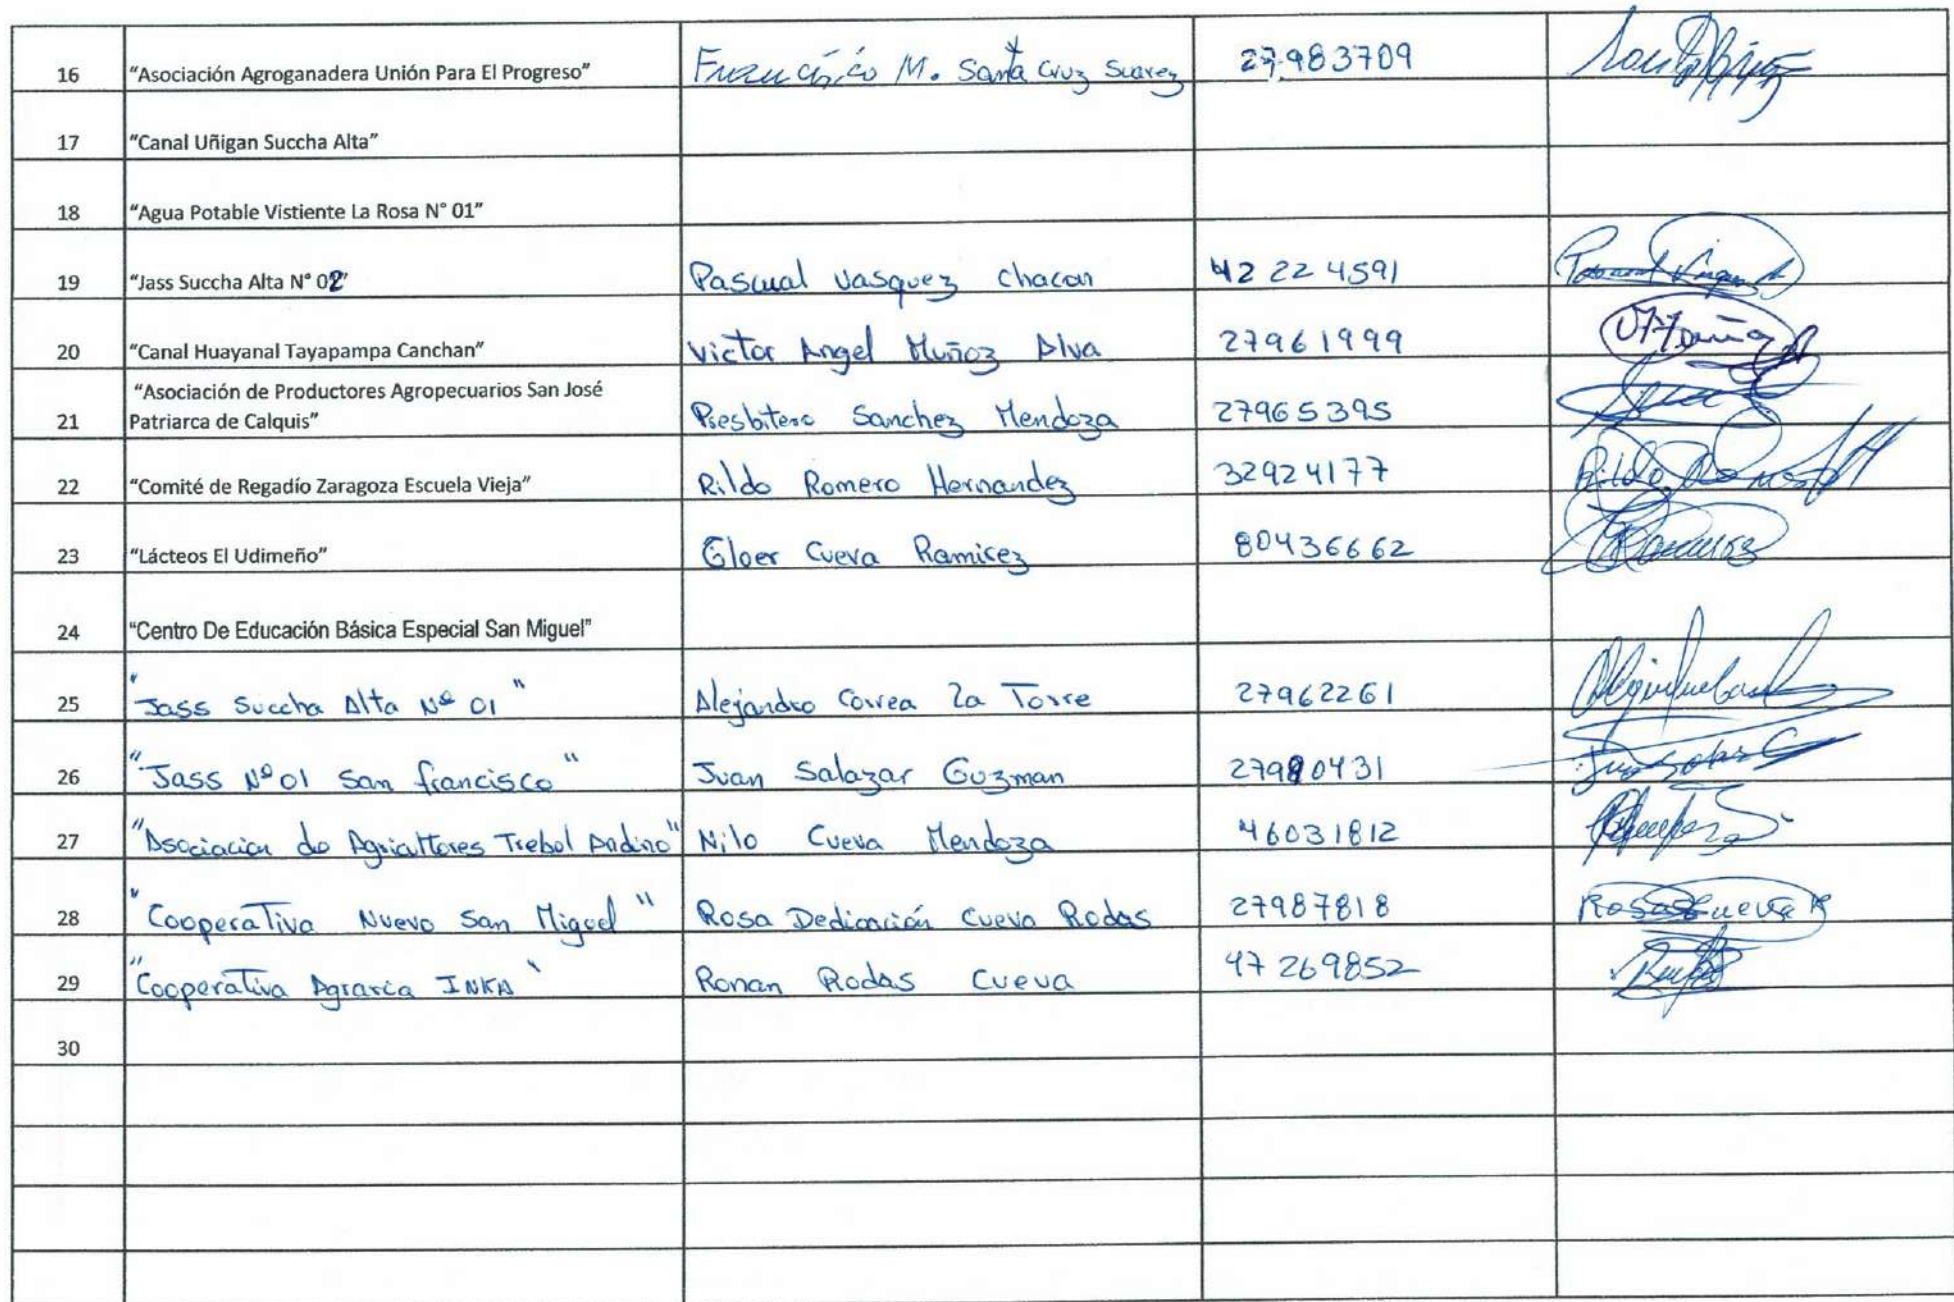 16 "Asociación Agroganadera Unión Para El Progreso" M. Santa Cruz Suarez 27983709
17 "Canal Uñigan Succha Alta"
18 "Agua Potable Vistiente La Rosa N° 01"
19 "Jass Succha Alta N° 02" Pascual Vasquez Chacon 42224591
20 "Canal Huayanal Tayapampa Canchan" Victor Angel Muñoz Alva 27961999
"Asociación de Productores Agropecuarios San José
21 Patriarca de Calquis" Presbitero Sanchez Mendoza 27965395
22 "Comité de Regadío Zaragoza Escuela Vieja" Rildo Romero Hernandez 32924177 Rildo
23 "Lácteos El Udimeño" Gloer Cueva Ramirez 80436662
24 "Centro De Educación Básica Especial San Miguel"
25 "Jass Succha Alta Nº 01" Alejandro Correa La Torre 27962261
26 "Jass Nº 01 San francisco" Juan Salazar Guzman 27980431
27 "Asociacion de Agricultores Trebol Andino" Nilo Cueva Mendoza 46031812
28 "Cooperativa Nuevo San Miguel" Rosa Dedicación Cueva Rodas 27987818 Rosa Cueva R
29 "Cooperativa Agraria INKA" Ronan Rodas Cueva 47269852
30